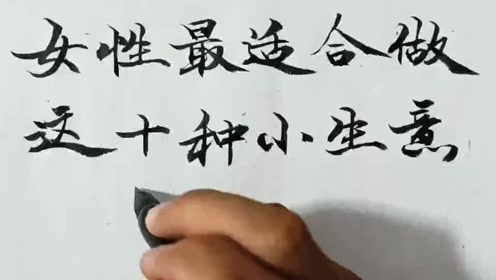 女性最适合做
这十种小生意